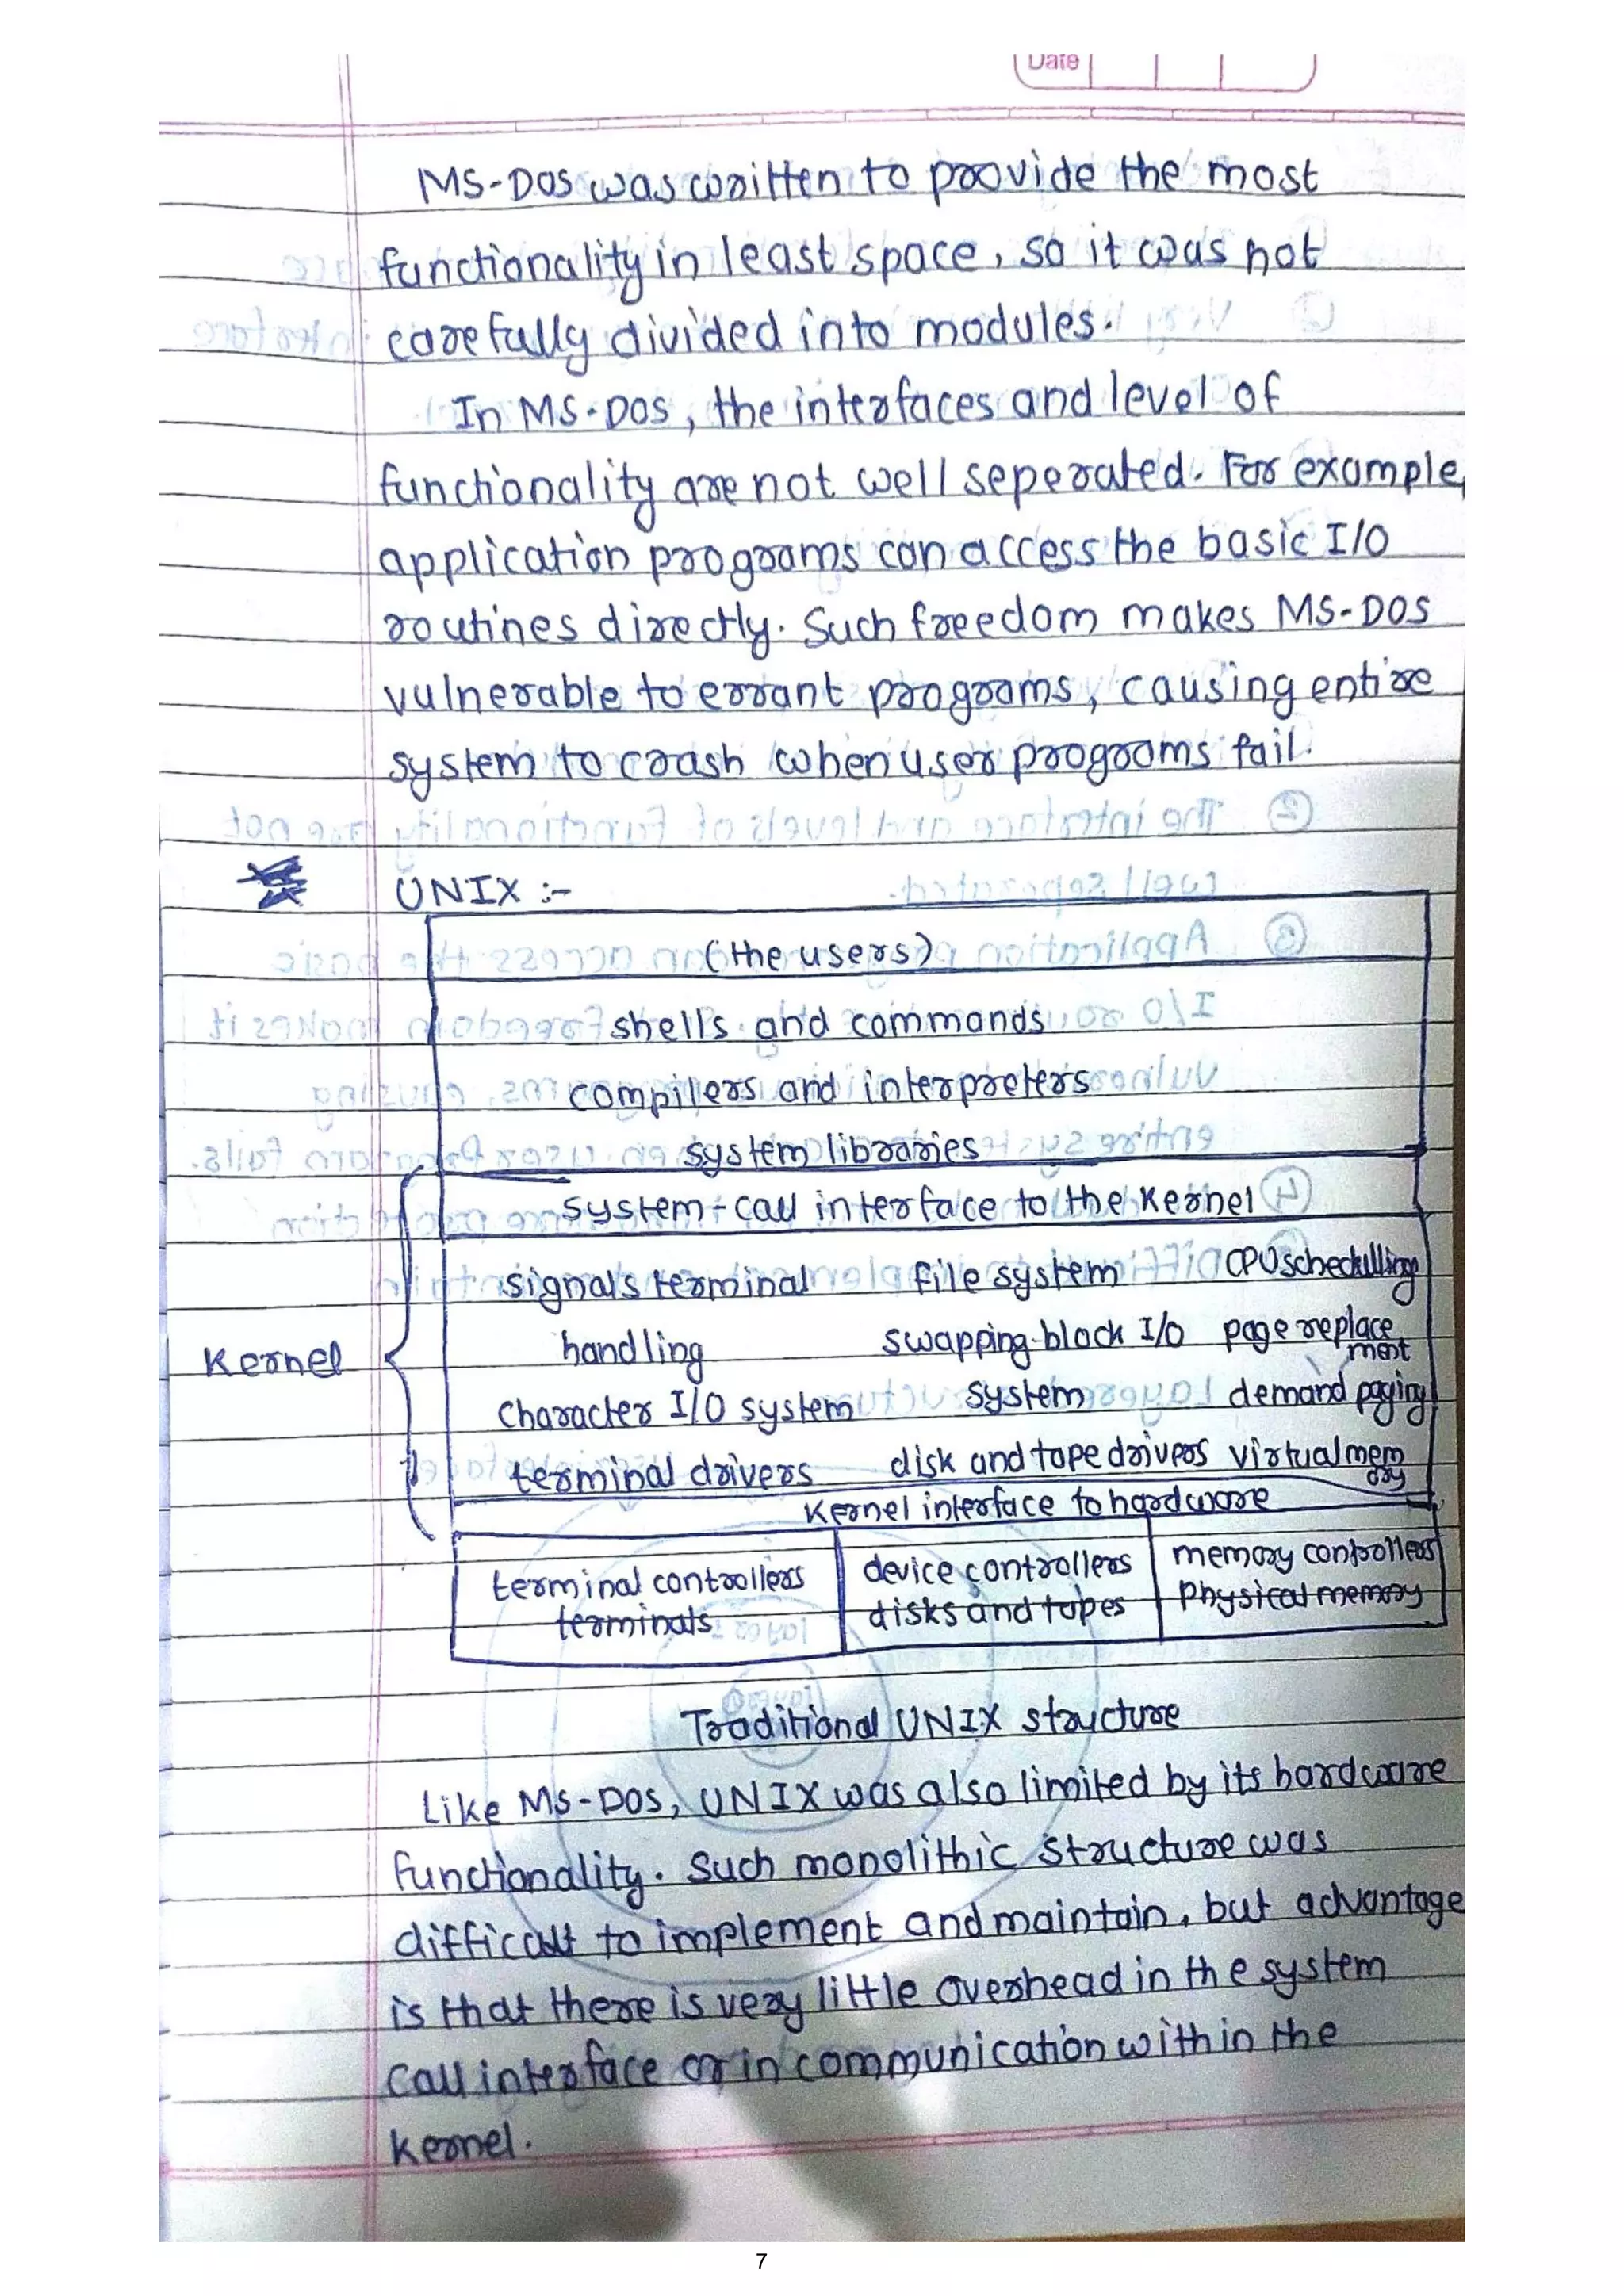 Date
MS-DOS was written to provide the most
functionality in least space, so it was not
carefully divided into modules.
In MS-DOS, the interfaces and level of
functionality are not well seperated. For example,
application programs can access the basic I/O
routines directly. Such freedom makes MS-DOS
vulnerable to errant programs, causing entire
system to crash when user programs fail.
UNIX :-
(the users)
shells and commands
compilers and interpreters
system libraries
system-call interface to the kernel
signals terminal file system CPU schedulling
handling swapping block I/O page replacement
character I/O system system demand paging
terminal drivers disk and tape drivers virtual memory
Kernel
Kernel interface to hardware
terminal controllers device controllers memory controllers
terminals disks and tapes physical memory
Traditional UNIX structure
Like MS-DOS, UNIX was also limited by its hardware
functionality. Such monolithic structure was
difficult to implement and maintain, but advantage
is that there is very little overhead in the system
call interface or in communication within the
kernel.
7